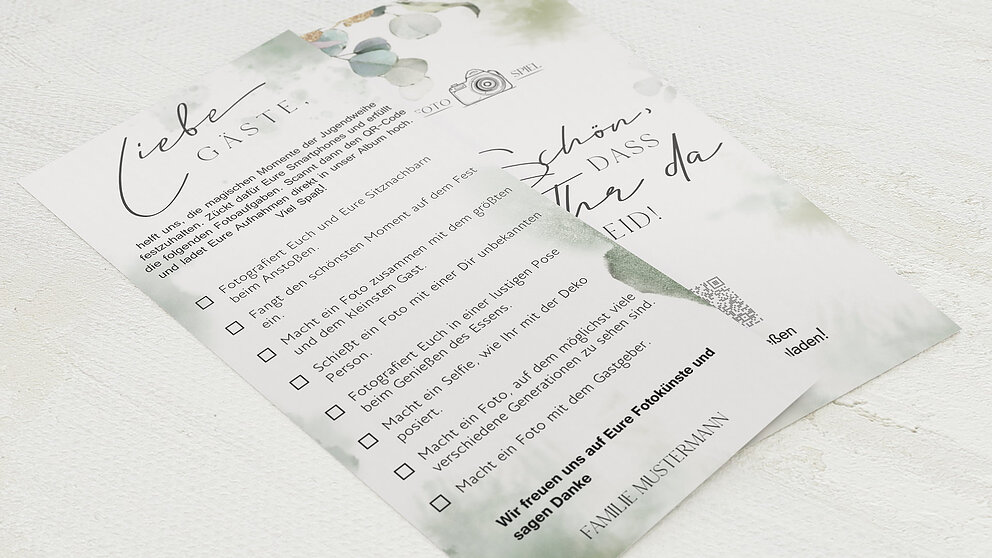 Liebe
GÄSTE,
helft uns, die magischen Momente der Jugendweihe
festzuhalten. Zückt dafür Eure Smartphones und erfüllt
die folgenden Fotoaufgaben. Scannt dann den QR-Code
und ladet Eure Aufnahmen direkt in unser Album hoch.
Viel Spaß!
Fotografiert Euch und Eure Sitznachbarn
beim Anstoßen.
Fangt den schönsten Moment auf dem Fest
ein.
Macht ein Foto zusammen mit dem größten
und dem kleinsten Gast.
Schießt ein Foto mit einer Dir unbekannten
Person.
Fotografiert Euch in einer lustigen Pose
beim Genießen des Essens.
Macht ein Selfie, wie Ihr mit der Deko
posiert.
Macht ein Foto, auf dem möglichst viele
verschiedene Generationen zu sehen sind.
Macht ein Foto mit dem Gastgeber.
Wir freuen uns auf Eure Fotokünste und
sagen Danke
FAMILIE MUSTERMANN
OTO
SPIEL
Schön,
DASS
Ihr da
EID!
ßen
laden!